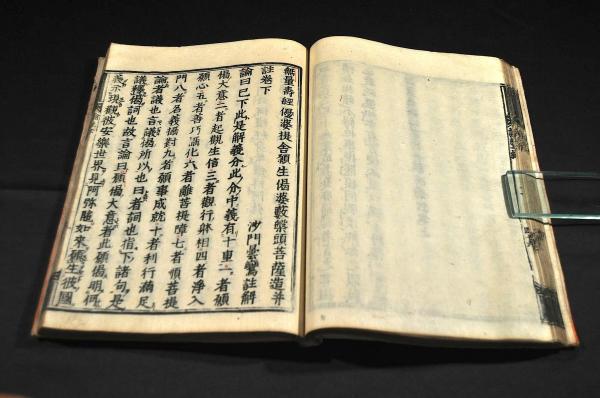 無量壽經優婆提舍願生偈婆藪槃頭菩薩造并
註卷下
沙門曇鸞註解
論曰已下此是解義分此分中義有十重一者願
偈大意二者起觀生信三者觀行躰相四者淨入
願心五者善巧攝化六者離菩提障七者順菩提
門八者名義攝對九者願事成就十者利行滿足
論者議也言議偈所以也曰者詞也指下諸句是
議釋偈詞也故言論曰願偈大意者此願偈明何
義示現觀彼安樂世界見阿弥陀如來願生彼國